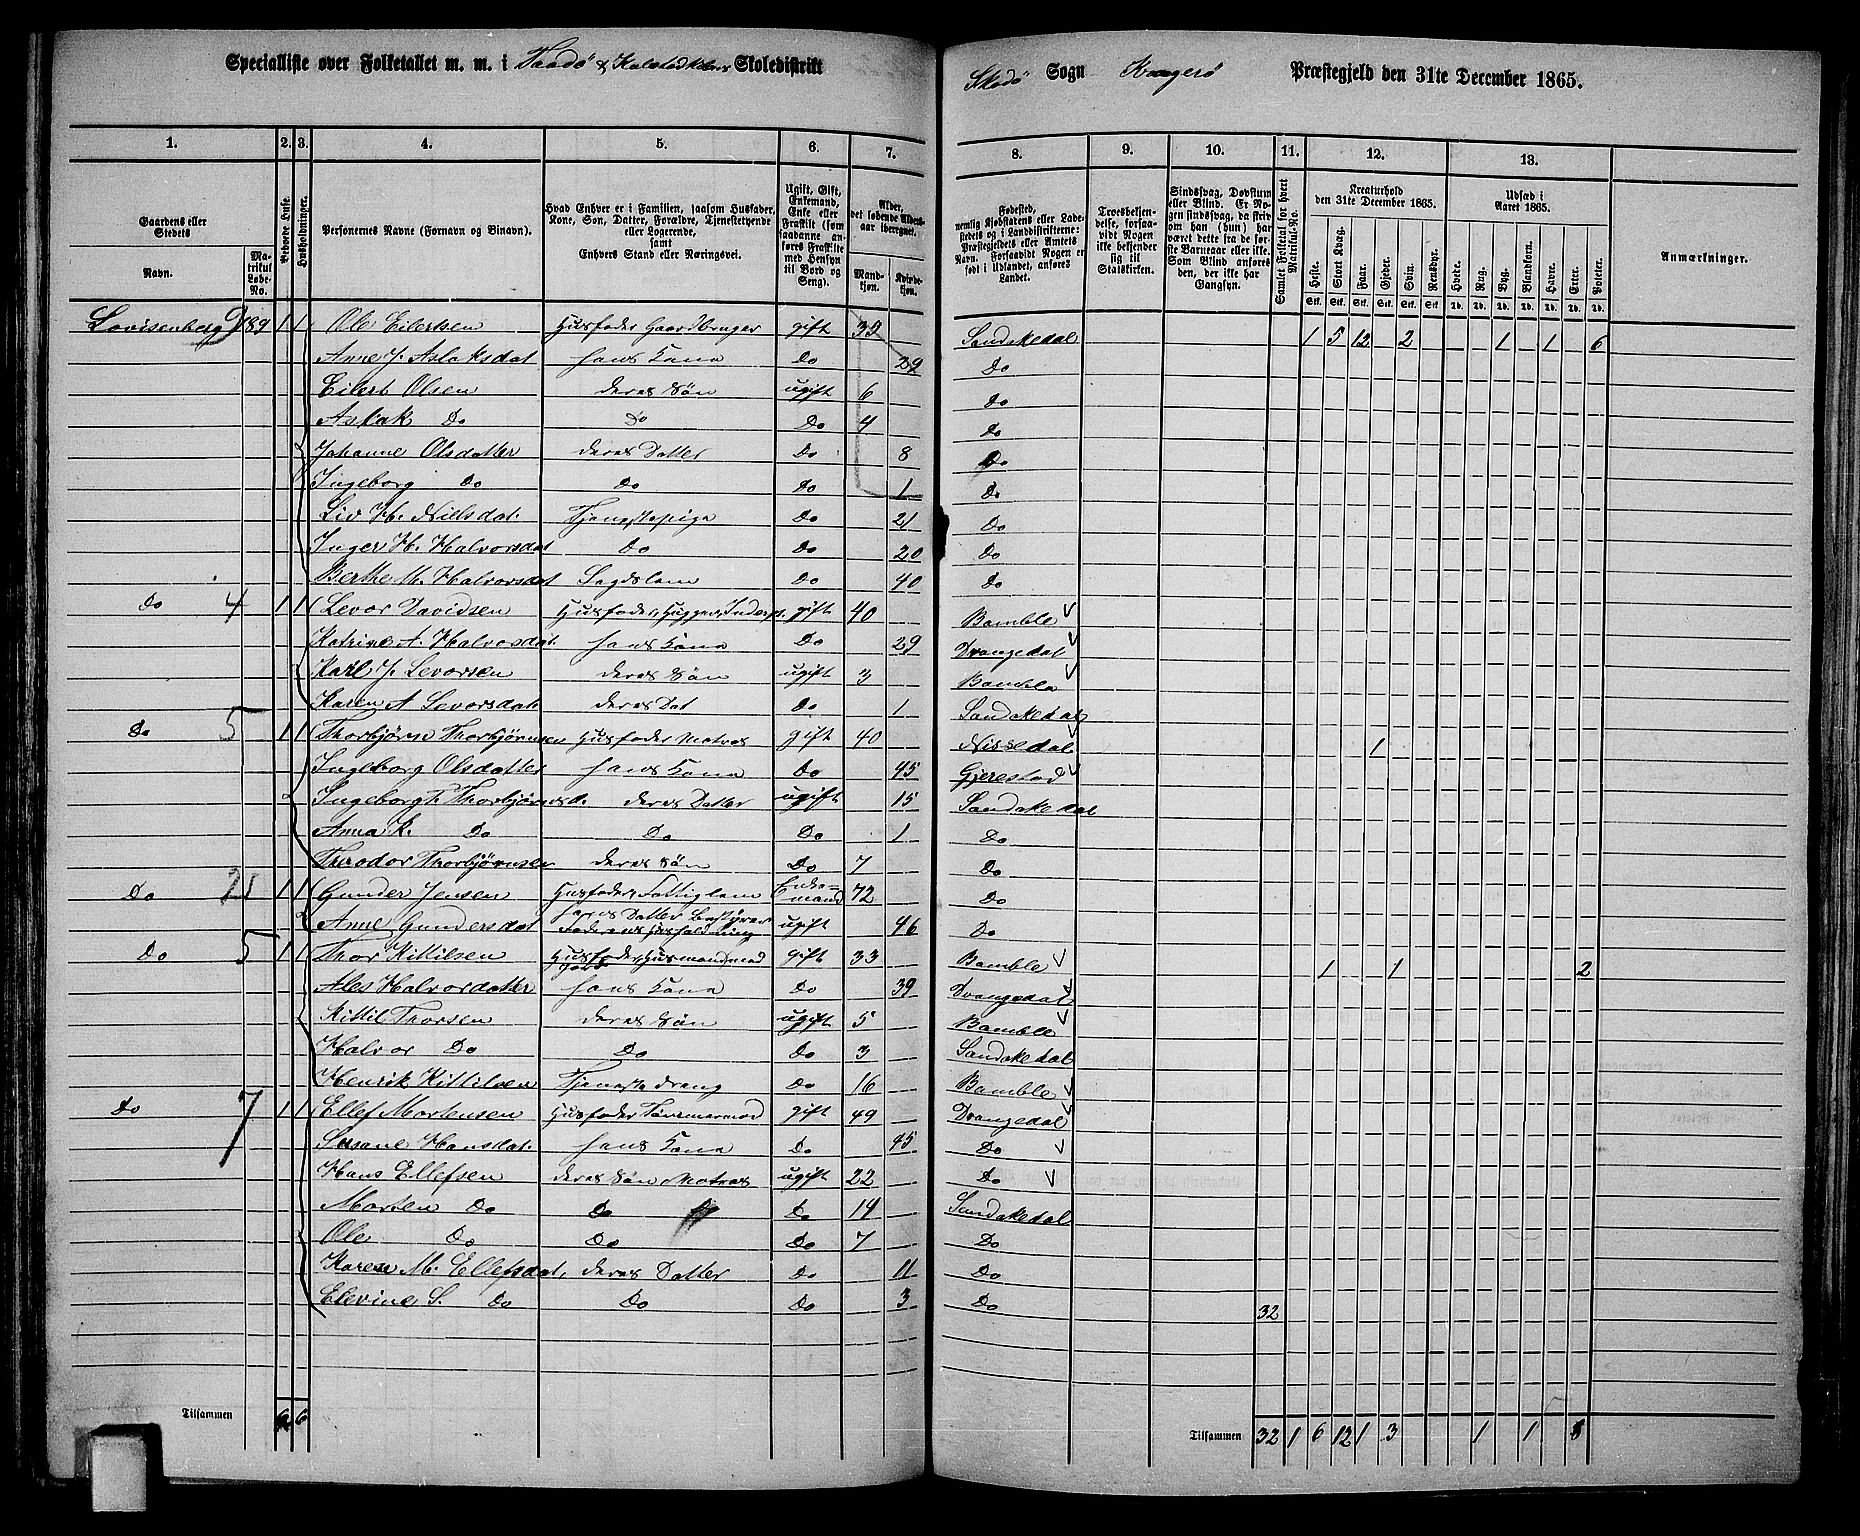 Specialliste over Folketallet m. m. i Skoledistrikt
Sogn Præstegjeld den 31te December 1865.
1. 2. 3. 4. 5. 6. 7. 8. 9. 10. 11. 12. 13.
Gaardens eller Stedets
Navn.
Matrikul Løbe-No.
Beboede Huse.
Husholdninger.
Personernes Navne (Fornavn og Binavn).
Hvad Enhver er i Familien, saasom Husfader, Kone, Søn, Datter, Forældre, Tjenestetyende eller Logerende, samt Enhvers Stand eller Næringsvei.
Ugift, Gift, Enkemand, Enke eller Fraskilt (som saadanne anføres Fraskilte med Hensyn til Bord og Seng).
Alder, det løbende Aldersaar iberegnet.
Mandkjøn. Kvindekjøn.
Fødested, nemlig Kjøbstadens eller Ladestedets og i Landdistrikterne: Præstegjeldets eller Amtets Navn. Forsaavidt Nogen er født i Udlandet, anføres Landet.
Troesbekjendelse, forsaavidt Nogen ikke bekjender sig til Statskirken.
Sindssvag, Døvstum eller Blind. Er Nogen sindssvag, da skrives om han (hun) har været dette fra de første Barneaar eller ikke. Som Blind anføres den, der ikke har Gangsyn.
Samlet Folketal for hvert Matrikul-No.
Kreaturhold den 31te December 1865.
Heste. Stort Kvæg. Faar. Gjeder. Svin. Rensdyr.
Udsæd i Aaret 1865.
Hvede. Rug. Byg. Blandkorn. Havre. Erter. Poteter.
Anmærkninger.
Lovisenberg 9 189 1 1 Ole Eilertsen Husfader Gaardbruger gift 32 Sandøkedal 1 5 12 2 1 1 6
Anne J. Aslaksdat hans Kone Do 29 Do
Eilert Olsen deres Søn ugift 6 Do
Aslak Do Do Do 4 Do
Johanne Olsdatter deres Datter Do 8 Do
Ingeborg Do Do Do 1 Do
Liv H. Nilsdat. Tjenestepige Do 21 Do
Inger H. Halvorsdat Do Do 20 Do
Berthe M. Halvorsdat Lægdslem Do 40 Do
Do 4 1 1 Levor Davidsen gift 40 Bamble
Katrine A. Halvorsdat hans Kone Do 29 Drangedal
Karl J. Levorsen deres Søn ugift 3 Bamble
Karen A Levorsdat deres Dat Do 1 Sandøkedal
Do 5 1 1 Thorbjørn Thorbjørnsen Husfader Matros gift 40 Nissedal 1
Ingeborg Olsdatter hans Kone Do 45 Gjerestad
Ingeborg T. Thorbjørnsd. deres Datter ugift 15 Sandøkedal
Anna K. Do Do Do 1 Do
Theodor Thorbjørnsen deres Søn Do 7 Do
Do 2 1 1 Gunder Jensen Husfader, Fattiglem Enke=mand 72 Do
Anne Gundersdat hans Datter Bestyrer Faderens Husholdning ugift 46 Do
Do 5 1 1 Thor Kittilsen Husfader, Husmand med Jord gift 33 Bamble 1 1 2
Ales Halvordatter hans Kone Do 39 Drangedal
Kittil Thorsen deres Søn ugift 5 Bamble
Halvor Do Do Do 3 Sandøkedal
Henrik Kittilsen Tjenestedreng Do 16 Bamble
Do 7 1 1 Ellef Mortensen Husfader Tømmermand gift 49 Drangedal
Susane Hansdat. hans Kone Do 45 Do
Hans Ellefsen deres Søn Matros ugift 22 Do
Morten Do Do Do 14 Sandøkedal
Ole Do Do Do 7 Do
Karen M. Ellefsdat. deres Datter Do 11 Do
Elevine S. Do Do Do 3 Do 32
Tilsammen 6 6 Tilsammen 32 1 6 12 1 3 1 1 8